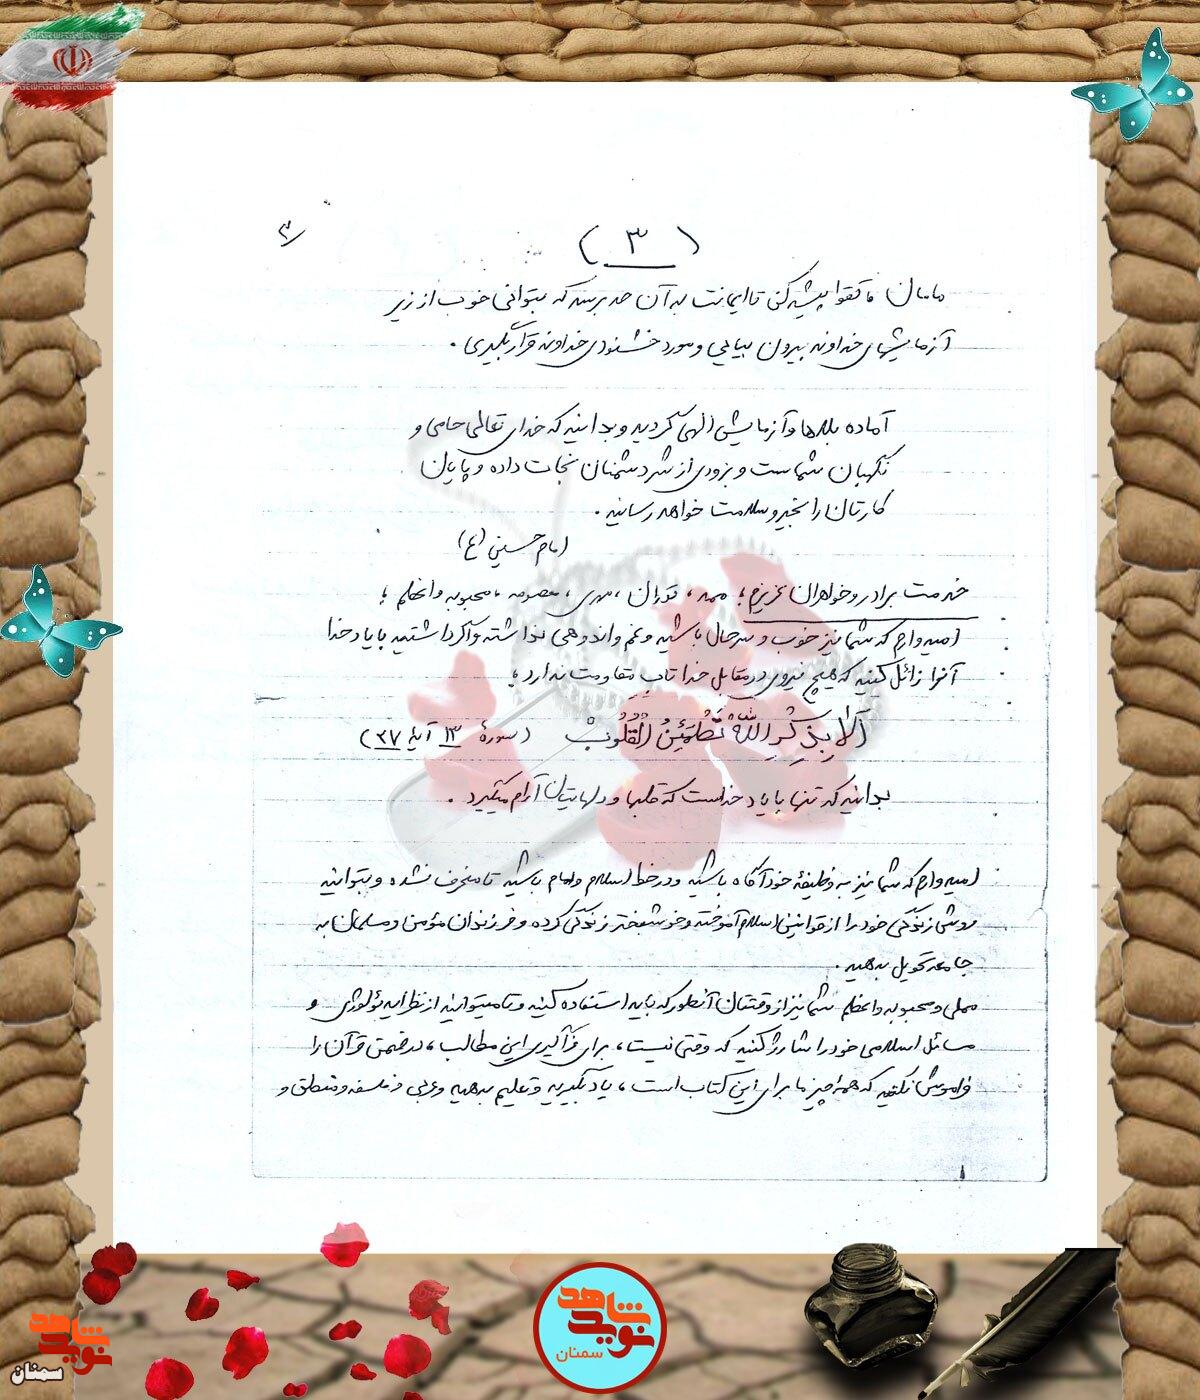 (۳)
۳
مامان تقوا پیشه کن تا ایمانت به آن حد برسد که بتوانی خوب از زیر
آزمایشهای خداوند بیرون بیایی و مورد خشنودی خداوند قرار بگیری.
آماده بلاها و آزمایش الهی گردید و بدانید که خدای تعالی حامی و
نگهبان شماست و بزودی از شر دشمنان نجات داده و پایان
کارتان را بخیر و سلامت خواهد رسانید.
امام حسین (ع)
خدمت برادر و خواهران عزیزم، ممد، قربان، مهری، معصومه، محبوبه و اعظم
امیدوارم که شما نیز خوب و سرحال باشید و غم و اندوهی نداشته و اگر داشتید با یاد خدا
آنرا زائل کنید که هیچ نیروی در مقابل خدا تاب مقاومت ندارد
اَلا بِذِکْرِ اللهِ تَطْمَئِنُّ الْقُلُوبُ (سورهٔ ۱۳ آیه ۲۷)
بدانید که تنها با یاد خداست که قلبها و دلهایتان آرام میگیرد.
امیدوارم که شما نیز به وظیفهٔ خود آگاه باشید و در خط اسلام و امام باشید تا منحرف نشده و بتوانید
روش زندگی خود را از قوانین اسلام آموخته و خوشبختر زندگی کرده و فرزندان مؤمن و مسلمان به
جامعه تحویل بدهید.
و محبوبه و اعظم شما نیز از وقتتان آنطور که باید استفاده کنید و تا میتوانید از نظر ایدئولوژی و
مسائل اسلامی خود را شارژ کنید که وقتی نیست، برای فراگیری این مطالب، در ضمن قرآن را
فراموش نکنید که همه چیز ما برای این کتاب است، یاد بگیرید و تعلیم بدهید و عربی و فلسفه و منطق و
نوید شاهد
سمنان
نوید شاهد
سمنان